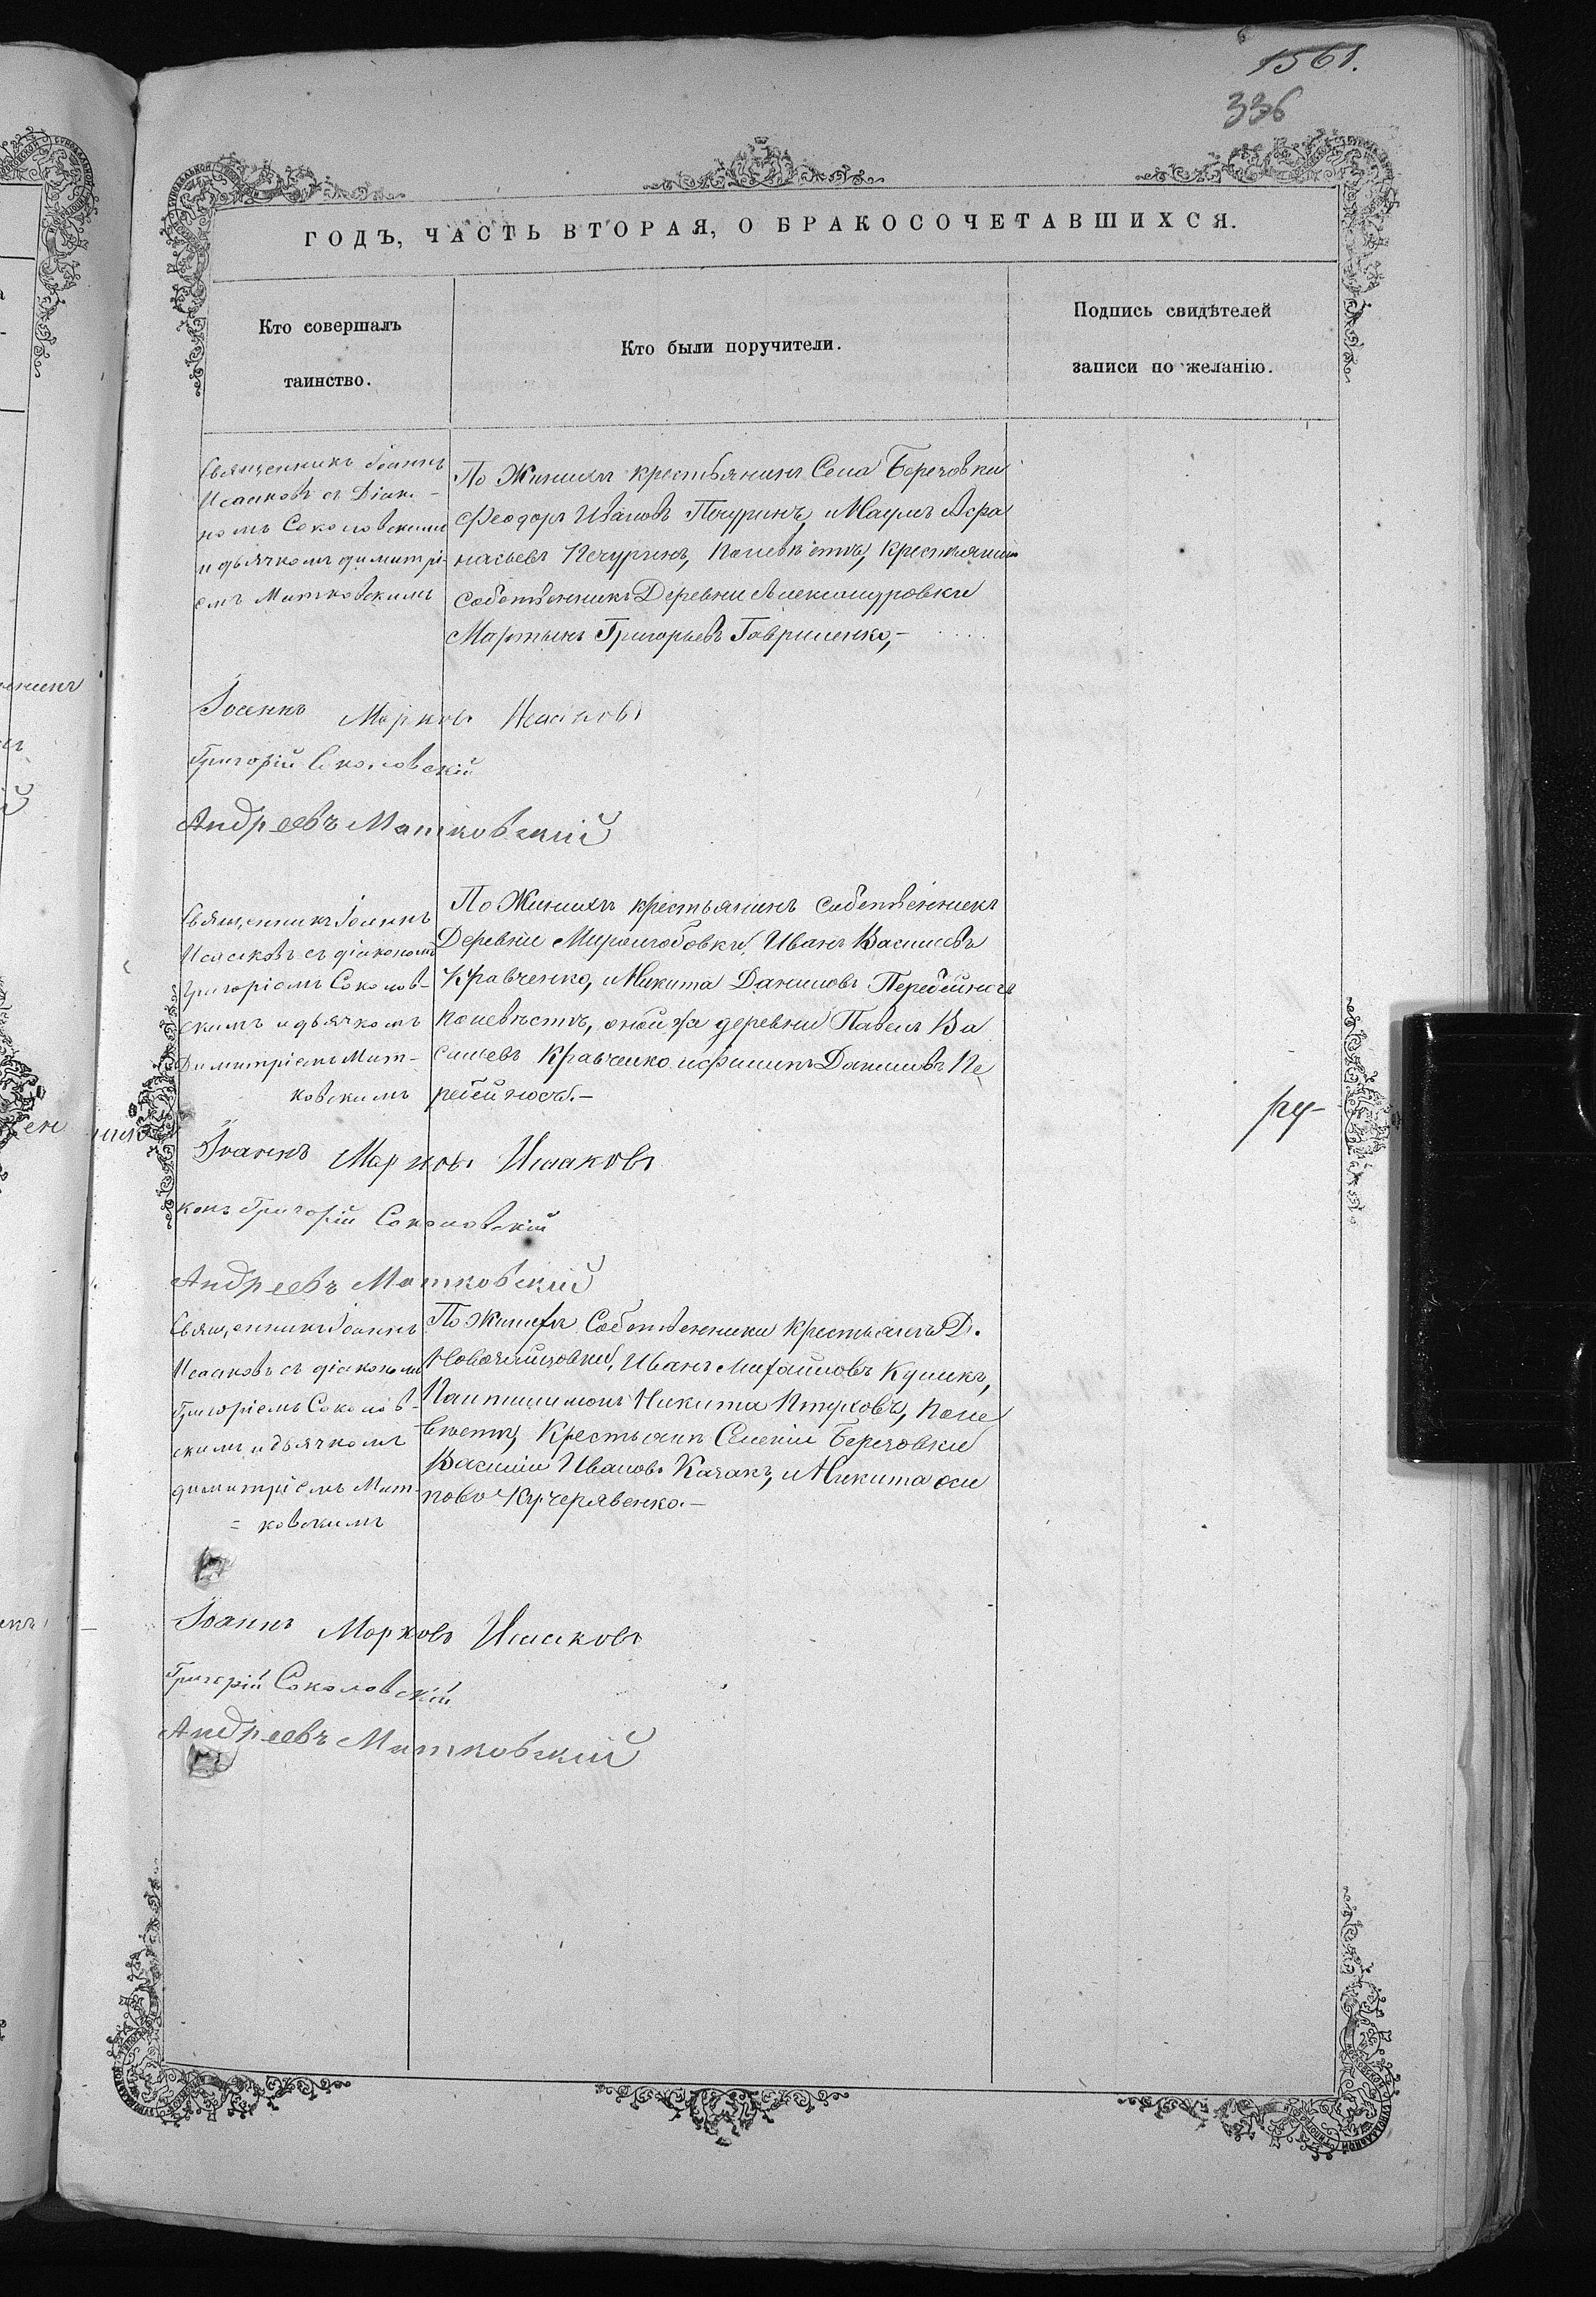 1561.
336
ГОДЪ, ЧАСТЬ ВТОРАЯ, О БРАКОСОЧЕТАВШИХСЯ.
Кто совершалъ
таинство.
Кто были поручители.
Подпись свидѣтелей
записи по желанію.
Священникъ Іоаннъ
Исааковъ съ Діако-
номъ Соколовскимъ
и дьячкомъ димитрі-
емъ Матковскимъ
По Женихѣ крестьянинъ Села Беречовки
Феодоръ Ивановъ Печуринъ, и Наумъ Афа
насьевъ Печуринъ, по невѣстѣ, крестьянинъ
собственникъ Деревни Александровки
Мартынъ Григорьевъ Гавриленко,-
Іоаннъ Марковъ Исааковъ
Григорій Соколовскій
Андреевъ Матковскій
Священникъ Іоаннъ
Исааковъ съ діакономъ
Григоріемъ Соколов-
скимъ и дьячкомъ
Димитріемъ Мат-
ковскимъ
По Женихѣ крестьянинъ собственникъ
Деревни Миролюбовки, Иванъ Васильевъ
Кравченко, и Никита Даниловъ Перебейносъ
по невѣстѣ, оной же деревни Павелъ Ва
сильевъ Кравченко и Данилов Пе
ребейносъ.-
ру-
Іоаннъ Марковъ Исааковъ
конъ Григорій Соколовскій
Андреевъ Матковскій
Священникъ Іоаннъ
Исааковъ съ діакономъ
Григоріемъ Соколов-
скимъ и дьячкомъ
димитріемъ Мат-
= ковскимъ
По женихѣ Собственники крестьяне Д.
Иванъ Михайловъ Куликъ,
Пантилимонъ Никита Птуховъ, по не
вѣстѣ, Крестьяне Беречовки
Василій Ивановъ Казакъ, и Никита оси
повъ Кучерявенко.-
Іоаннъ Марковъ Исааковъ
Григорій Соколовскій
Андреевъ Матковскій